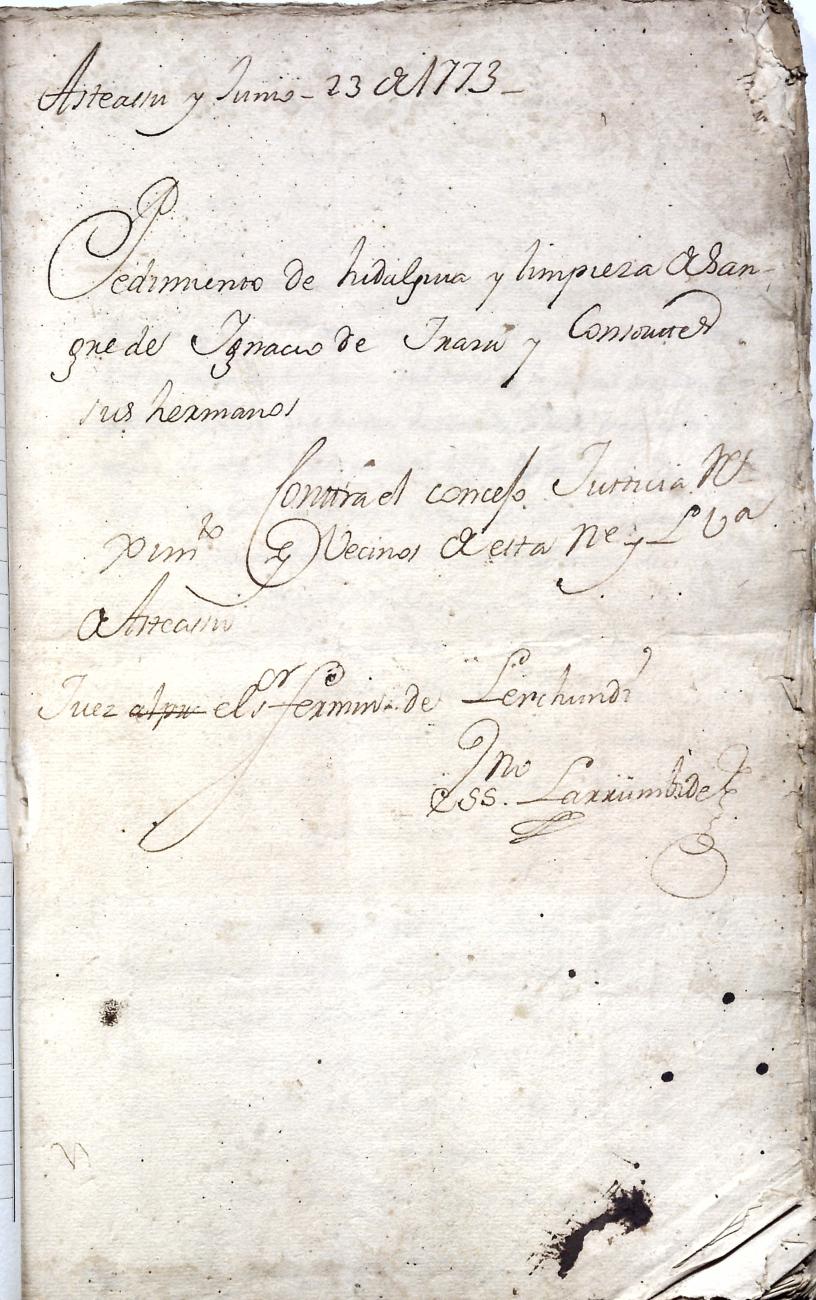 Asteassu y Junio - 23 de 1773 -
Pedimiento de hidalguia y limpieza de San-
gre de Ignacio de Yrazu y Consortes
sus hermanos
Contra el concejo Justicia Re
ximto y Vecinos de esta Ne y L Va
de Asteassu
Juez el sor fermin de Lerchundi
Ess. Larrumbide